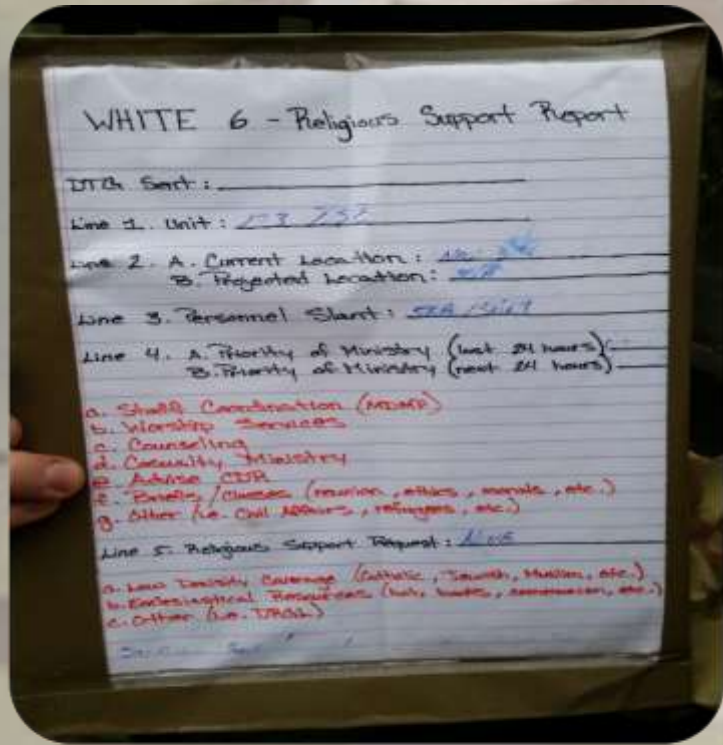 WHITE 6 - Religious Support Report
DTG Sent:
Line 1. Unit:
Line 2. A. Current Location:
B. Projected Location:
Line 3. Personnel Slant:
Line 4. A. Priority of Ministry (last 24 hours)
B. Priority of Ministry (next 24 hours)
a. Staff Coordination (MDMP)
b. Worship Services
c. Counseling
d. Casualty Ministry
e. Advise CDR
f. Briefs/Classes (reunion, ethics, morals, etc.)
g. Other (i.e. Civil Affairs, refugees, etc.)
Line 5. Religious Support Request: None
a. Low Density Coverage (Catholic, Jewish, Muslim, etc.)
b. Ecclesiastical Resources (books, communion, etc.)
c. Other (i.e.